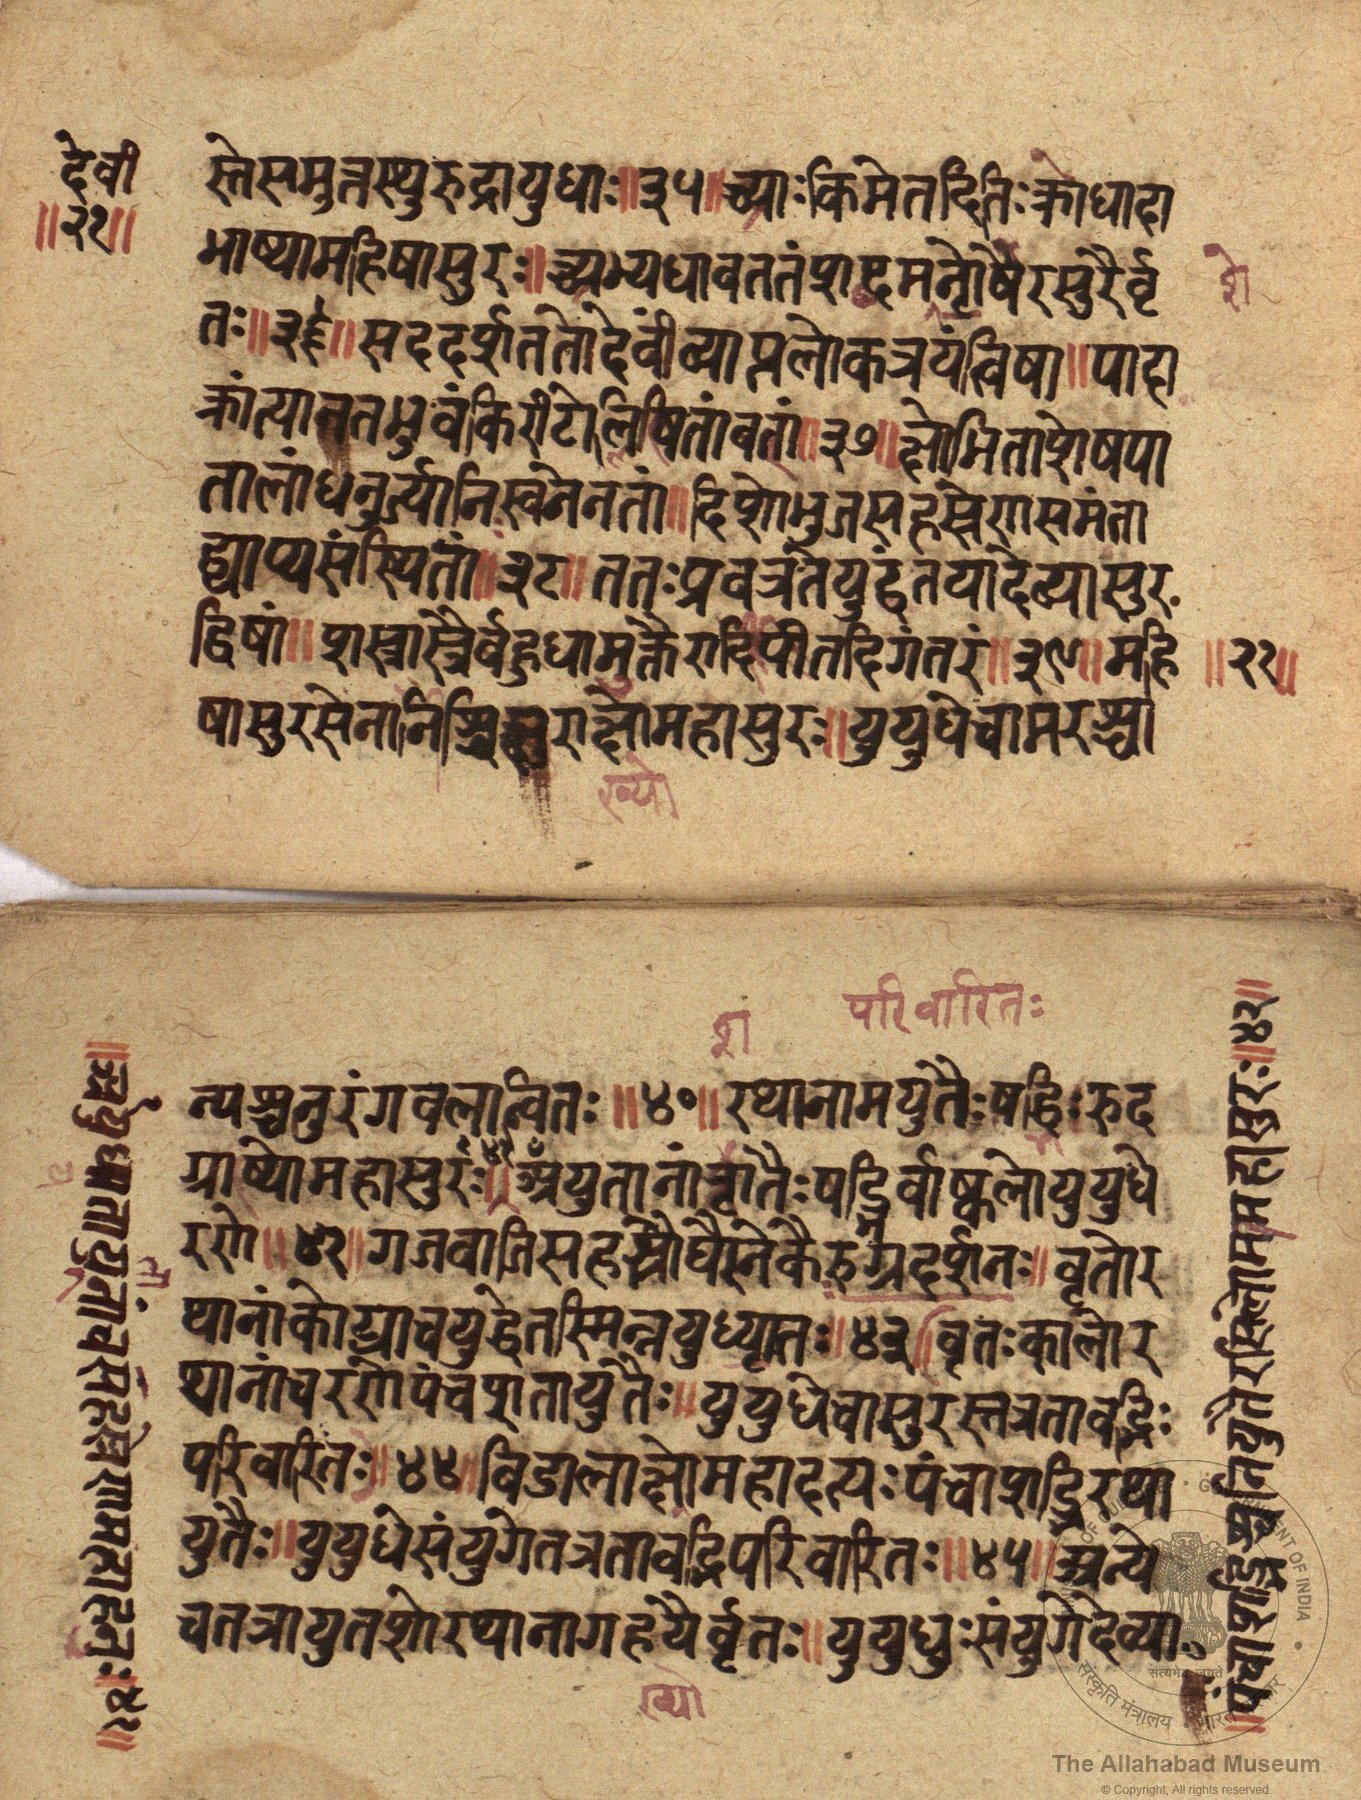 देवी
॥२१॥
स्तेसमुत्तस्थुरुद्रायुधाः॥३५॥च्याःकिमेतदितिःक्रोधादा
भाष्यामहिषासुरः॥च्यभ्यधावततंशब्दमशेषैरसुरैर्वृ
शे
तः॥३६॥सददर्शततोदेवींव्याप्तलोकत्रयंत्विषा॥पादा
क्रांत्यानतभुवंकिरीटोल्लिषितांबतां॥३७॥क्षोभिताशेषपा
तालांधनुर्ज्यानिस्वनेनतां॥दिशोभुजसहस्रेणसमंता
द्व्याप्यसंस्थितां॥३८॥ततःप्रवर्त्रतेयुद्धंतयादेव्यासुर
द्विषां॥शस्त्रास्त्रैर्वहुधामुक्तैरादिपीतदिगंतरं॥३९॥महि
॥२१॥
षासुरसेनानिश्चिक्षुराक्षोमहासुरः॥युयुधेचामरश्चा
ख्यो
परिवारितः
शा
न्यश्चतुरंगवलान्वितः॥४०॥रथानामयुतैःषड्भिःरुद
ग्राष्योमहासुरः॥अयुतानांशतैःषड्भिर्वाष्कलोयुयुधे
रणे॥४२॥गजवाजिसहस्रौघैरनेकैरुग्रदर्शनः॥वृतोर
थानांकोट्याचयुद्धेतस्मिन्नयुध्यतः॥४३॥वृतःकालोर
थानांचरणेपंचशतायुतैः॥युयुधेचासुरस्तत्रतावद्भिः
परिवारितः॥४४॥विडालाक्षोमहादत्यःपंचाशद्भिरथा
युतैः॥युयुधेसंयुगेतत्रतावद्भिपरिवारितः॥४५॥अन्ये
चतत्रायुतशोरथानागहयैर्वृतः॥युयुधुःसंयुगेदेव्या
ख्यो
॥पंचाशद्भिश्चनियुतैरसिलोमामहासुरः॥४२॥
The Allahabad Museum
© Copyright, All rights reserved.
सत्यमेव जयते
संस्कृति मंत्रालय
GOVERNMENT OF INDIA